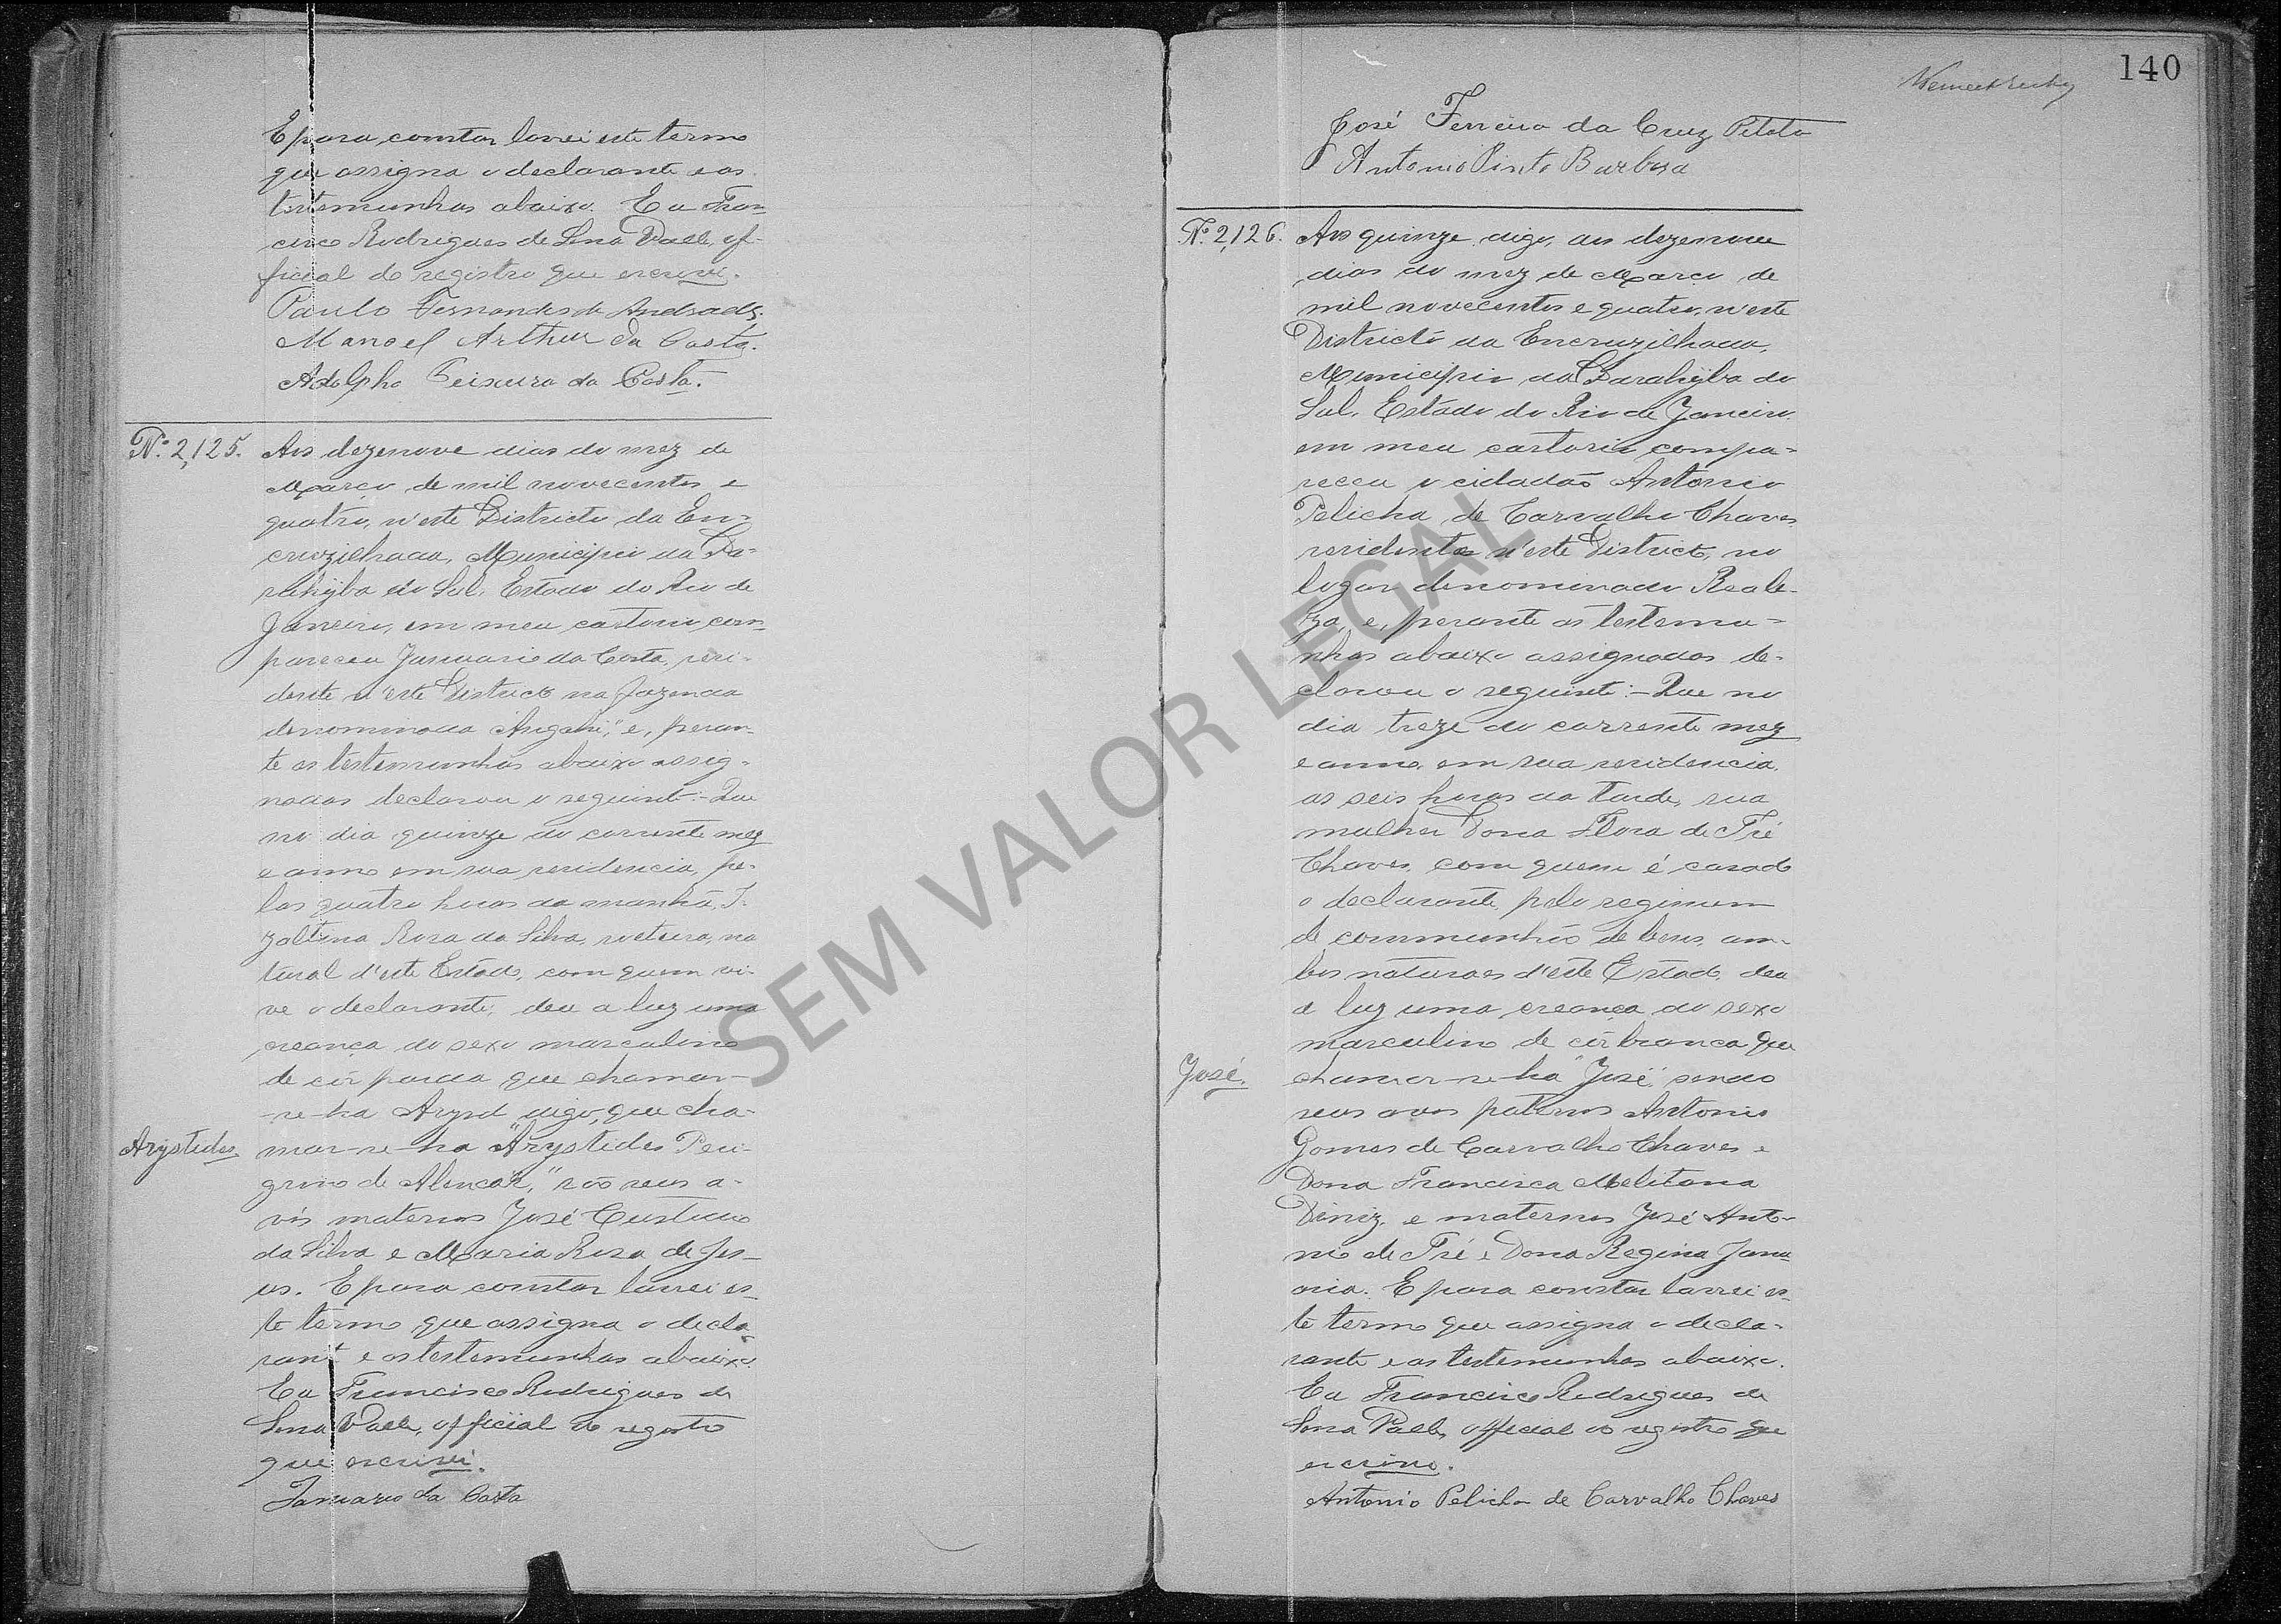 E para constar lavrei este termo
que assigna o declarante e as
testemunhas abaixo. Eu Fran-
cisco Rodrigues de Sena Valle, of-
ficial do registro que escrevi.
Paulo Fernandes de Andrade.
Manoel Arthur da Costa.
Adolpho Teixeira da Costa.
Nº 2,125. Aos dezenove dias do mez de
Março de mil novecentos e
quatro, n'este Districto da En-
cruzilhada, Municipio da Pa-
rahyba do Sul, Estado do Rio de
Janeiro, em meu cartorio com-
pareceu Januario da Costa, resi-
dente n'este Districto na fazenda
denominada e, peran-
te as testemunhas abaixo assig-
nadas declarou o seguinte:- Que
no dia quinze do corrente mez
e anno em sua residencia, pe-
las quatro horas da manhã, I-
zaltina Rosa da Silva, solteira, na
tural d'este Estado, com quem vi-
ve o declarante, deu a luz uma
creança do sexo masculino
de côr parda que chamar-
-se-ha Arysd digo, que cha-
Arystides. mar-se-ha "Arystides Peri-
grino de Alencar," são seus a-
vós maternos José Custodio
da Silva e Maria Rosa de Jes-
us. E para constar lavrei es-
te termo que assigna o decla-
rante e as testemunhas abaixo.
Eu Francisco Rodrigues de
Sena Valle, official do registro
que escrevi.
Januario da Costa
140
José Ferreira da Cruz Peloto
Antonio Pinto Barbosa
Nº 2,126. Aos quinze digo, aos dezenove
dias do mez de Março de
mil novecentos e quatro, n'este
Districto da Encruzilhada,
Municipio da Parahyba do
Sul, Estado do Rio de Janeiro,
em meu cartorio compa-
receu o cidadão Antonio
Pelicha de Carvalho Chaves
residente n'este Districto, no
logar denominado Reale-
za, e, perante as testemu-
nhas abaixo assignadas de-
clarou o seguinte:- Que no
dia treze do corrente mez
e anno, em sua residencia,
as seis horas da tarde, sua
mulher Dona Flora de Tré
Chaves, com quem é casado
o declarante pelo regimem
de communhão de bens, am-
bos naturaes d'este Estado, deu
a luz uma creança do sexo
masculino de côr branca que
José. chamar-se-ha "José" sendo
seus avos paternos Antonio
Gomes de Carvalho Chaves e
Dona Francisca Melitana
Diniz, e maternos José Anto-
nio de Tré e Dona Regina Janu
aria. E para constar lavrei es-
te termo que assigna o decla-
rante e as testemunhas abaixo.
Eu Francisco Rodrigues de
Sena Valle, official do registro que
escrevo.
Antonio Pelicha de Carvalho Chaves
SEM VALOR LEGAL